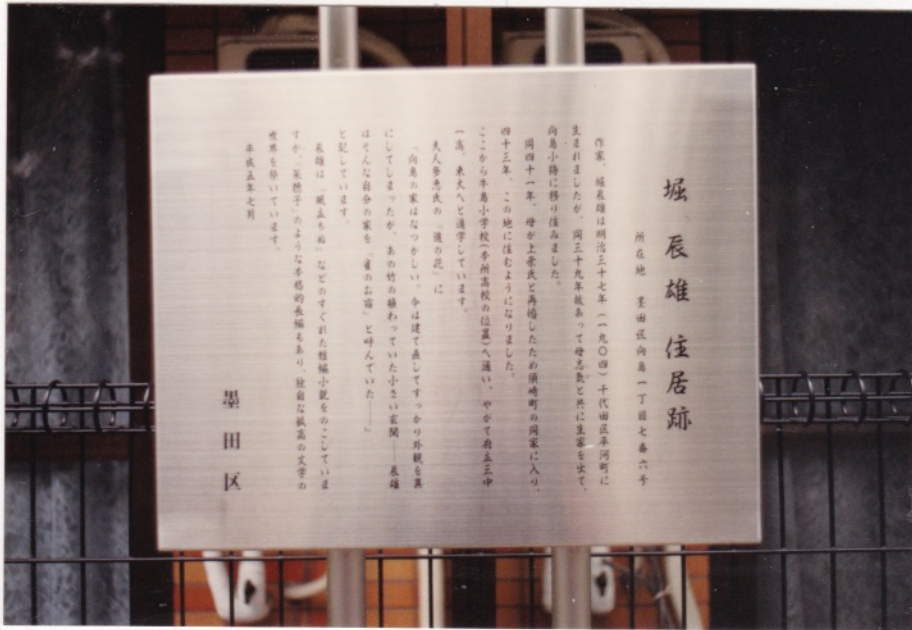 堀 辰雄 住居跡
所在地 墨田区向島一丁目七番六号
作家、堀辰雄は明治三十七年(一九〇四)千代田区平河町に
生まれましたが、同三十九年故あって母志気と共に生家を出て、
向島小梅に移り住みました。
同四十一年、母が上条氏と再婚したため須崎町の同家に入り、
四十三年、この地に住むようになりました。
ここから牛島小学校(本所高校の位置)へ通い、やがて府立三中
一高、東大へと通学しています。
夫人多恵氏の「葉の花」に
「向島の家はなつかしい。今は建て直してすっかり外観を異
にしてしまったが、あの竹の植わっていた小さい玄関……辰雄
はそんな自分の家を『雀のお宿』と呼んでいた……」
と記しています。
辰雄は「風立ちぬ」などのすぐれた短編小説をのこしていま
すが、「菜穂子」のような本格的長編もあり、独自な孤高の文学の
世界を築いています。
平成五年七月
墨田区